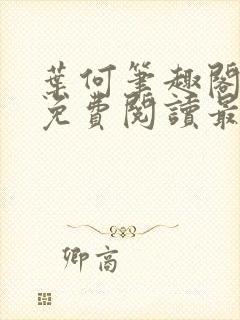 葉何筆趣閣
免費閱讀最
卿高